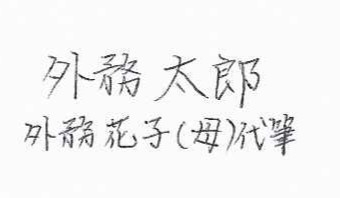 外務 太郎
外務 花子(母)代筆